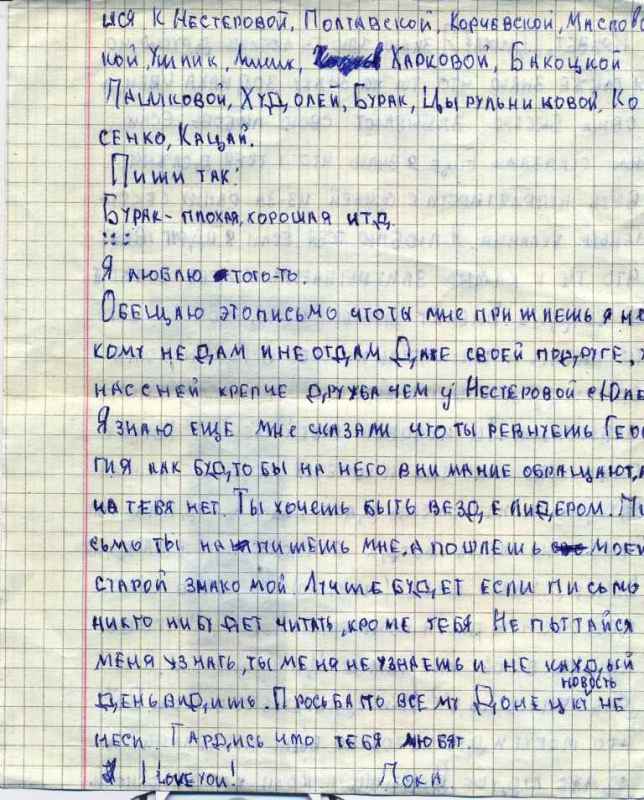 ися к Нестеровой, Полтавской, Корчевской, Маслов
кой, Ушпик, Харковой, Бакоцкой
Пашковой, Худолей, Бурак, Цырульниковой, Ко
сенко, Кацай.
Пиши так:
Бурак - плохая, хорошая итд.
Я люблю того-то.
Обещаю это письмо что ты мне пришлешь я не
кому не дам и не отдам Даже своей подруге, у
нас с ней крепче дружба чем у Нестеровой
Я знаю еще мне сказали что ты ревнуешь Гео
гия как будто бы на него внимание обращают, а
на тебя нет. Ты хочешь быть везде лидером. Пи
сьмо ты напишешь мне, а пошлешь моей
старой знакомой. Лучше будет если письмо
никто нибудет читать, кроме тебя. Не пыттайся
меня узнать, ты меня не узнаешь и не каждый
день видишь. Просьба по всему Донецку новость не
неси. Гардись что тебя любят.
I Love you! Пока